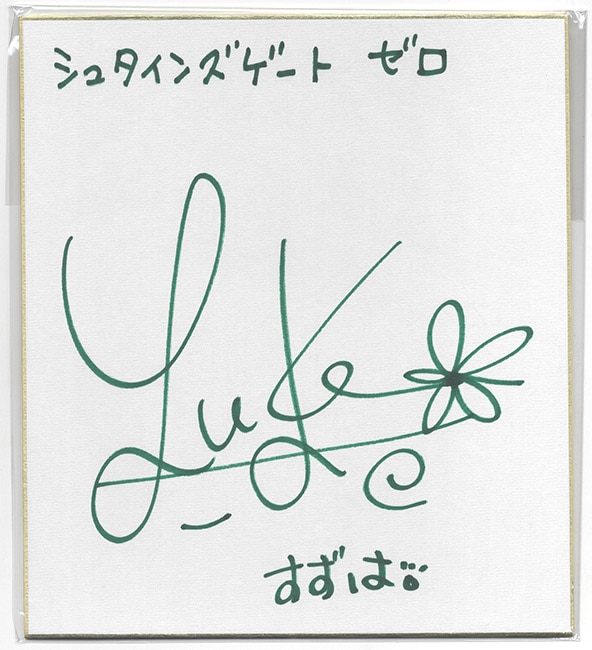 シュタインズゲート ゼロ
すずは